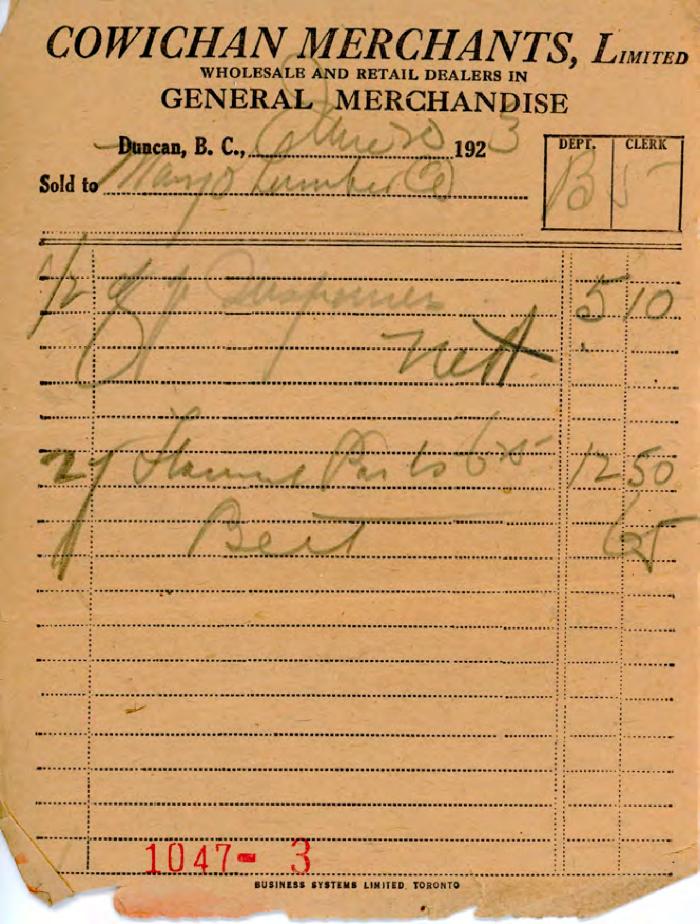 COWICHAN MERCHANTS, LIMITED
WHOLESALE AND RETAIL DEALERS IN
GENERAL MERCHANDISE
Duncan, B. C., June 20 1923
DEPT. CLERK
B 5
Sold to Mayo Lumber Co
1/2 5 10
Nett
2 Flannel 625 12 50
Belt 65
1047- 3
BUSINESS SYSTEMS LIMITED, TORONTO